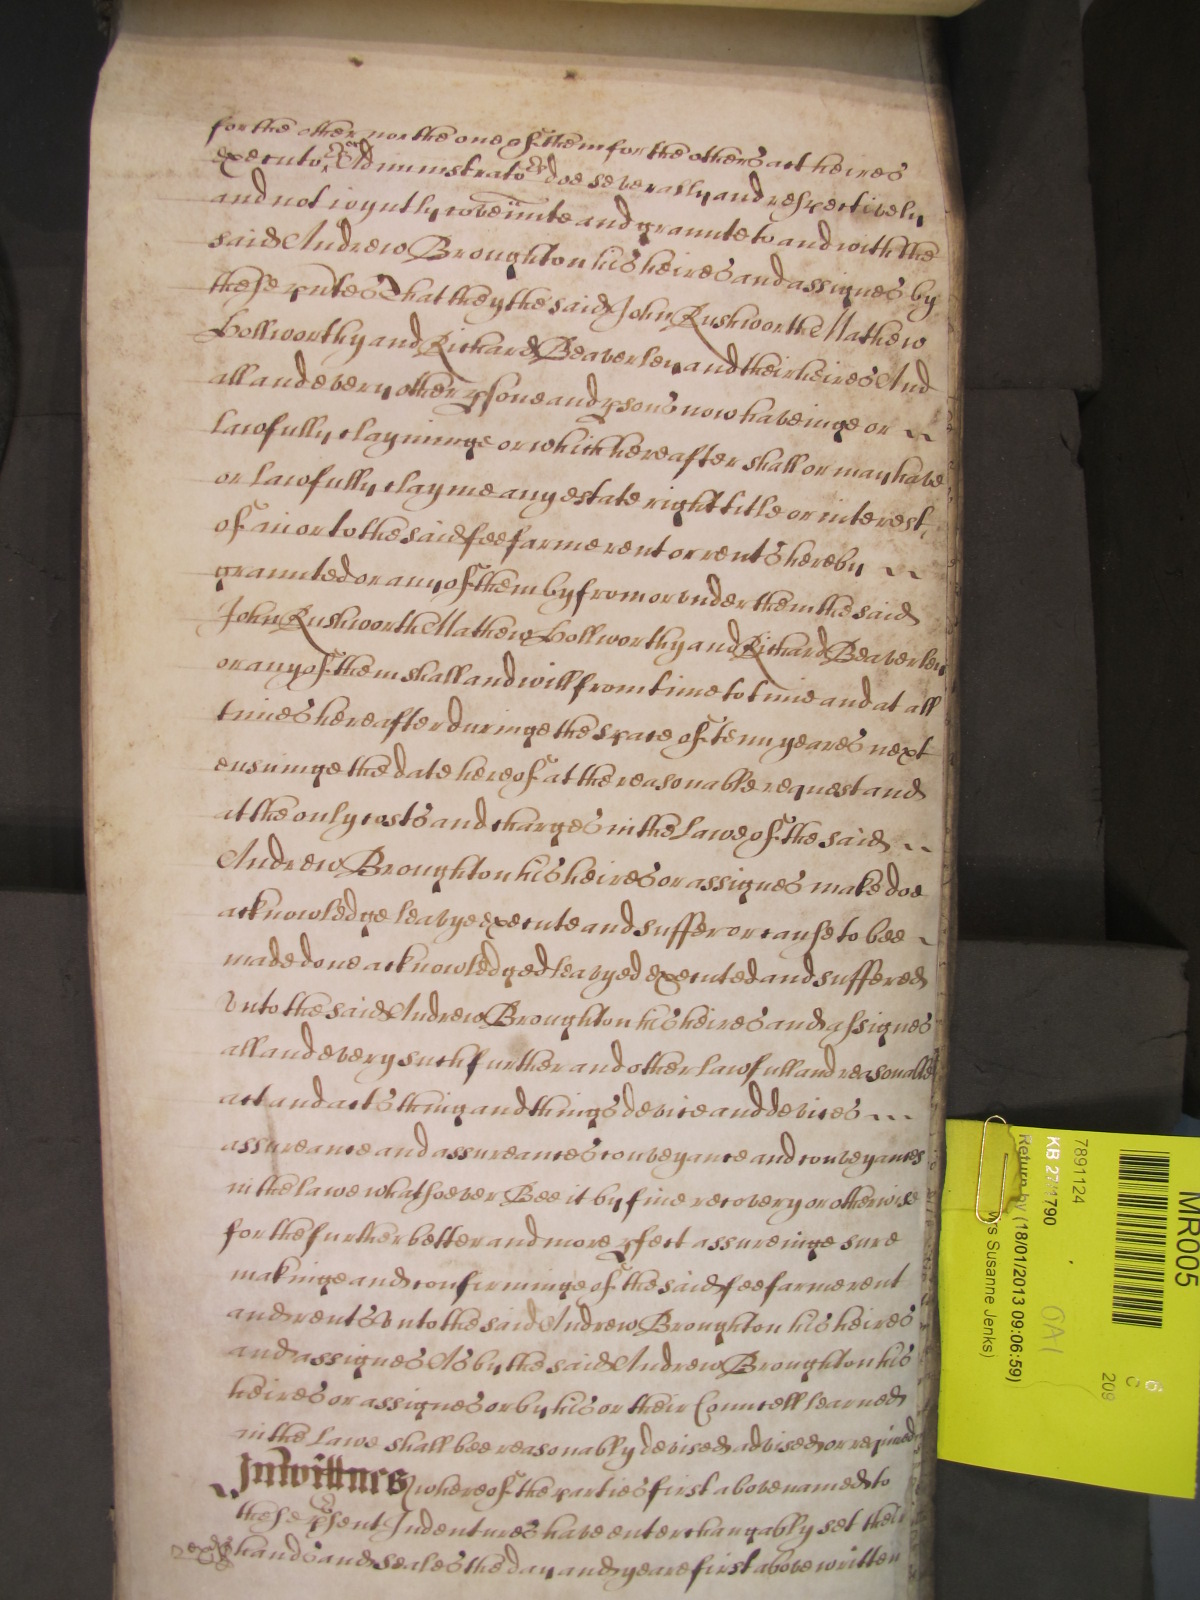 for the other nor the one of them for the others act heires
executors Administrators doe severally and respectively
and not ioyntly covennte and graunte to and with the
said Andrew Broughton his heires and assignes by
these pntes That they the said John Rushworth Mathew
Hollworthy and Richard Beaverley and their heires And
all and every other psone and psons now haveinge or ~~
lawfully clayminge or which hereafter shall or may have
or lawfully clayme any estate right title or interest
of in or to the said fee farme rent or rents hereby ~~
graunted or any of them by from or vnder them the said
John Rushworth Mathew Hollworthy and Richard Beaverley
or any of them shall and will from time to time and at all
times hereafter duringe the space of tenn yeares next
ensuinge the date hereof at the reasonable request and
at the only costs and charges in the lawe of the said ~~
Andrew Broughton his heires or assignes make doe
acknowledge leavye execute and suffer or cause to bee ~
made done acknowledged leavyed executed and suffered
vnto the said Andrew Broughton his heires and assignes
all and every such further and other lawfull and reasonable
act and acts thing and things device and devices ~~~
assureance and assureances conveyance and conveyances
in the lawe whatsoever Bee it by fine recovery or otherwise
for the further better and more pfect assureinge sure
makinge and confirminge of the said fee farme rent
and rents vnto the said Andrew Broughton his heires
and assignes As by the said Andrew Broughton his
heires or assignes or by his or their Councell learned
in the lawe shall bee reasonably devised advised or required
In wittnes whereof the parties first above named to
these psent Indentures have enterchangably set their
hands and seales the day and yeare first above written
MR005
7891124
KB 27/1790
Return by (18/01/2013 09:06:59)
Susanne Jenks)
209